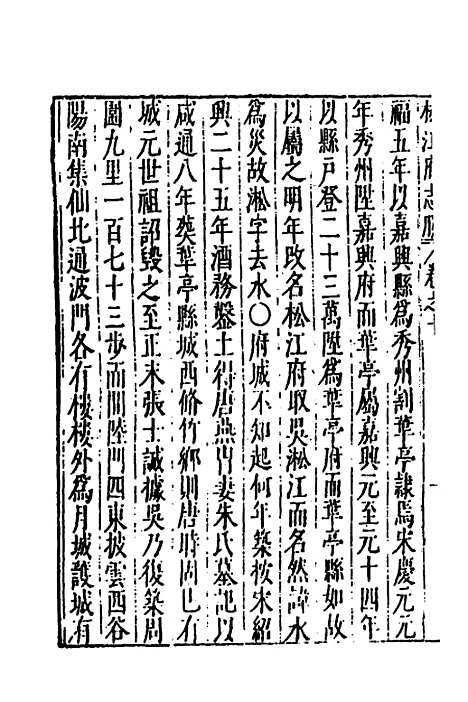 松江府志勝卷之十
福五年以嘉興縣爲秀州割華亭隷焉宋慶元元
年秀州陞嘉興府而華亭屬嘉興元至元十四年
以縣戸登二十三萬陞爲華亭府而華亭縣如故
以屬之明年改名松江府取吳淞江而名然諱水
爲災故淞字去水○府城不知起何年築按宋紹
興二十五年酒務盤土得唐燕胄妻朱氏墓記以
咸通八年葬華亭縣城西脩竹鄕則唐時固已有
城元世祖詔毀之至正末張士誠據吳乃復築周
圍九里一百七十三步而間陸門四東披雲西谷
陽南集仙北通波門各有樓樓外爲月城護城有